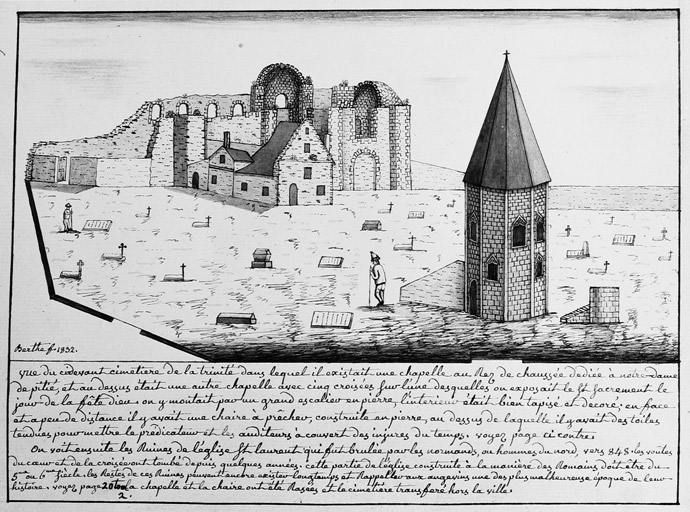 Berthe f. 1832.
vue du cidevant cimetiere de la trinité dans lequel il existait une chapelle au Rez de chaussée dediée à notre-dame
de pitié, et au dessus était une autre chapelle avec cinq croisées sur l'une desquelles on exposait le St sacrement le
jour de la fête dieu. on y montait par un grand escalier en pierre, l'interieur était bien tapissé et decoré, en face
et a peu de distance il y avait une chaire a prêcher, construite en pierre, au dessus de laquelle il y avait des toiles
tendues pour mettre le prédicateur et les auditeurs a couvert des injures du temps. voyez page ci contre.
On voit ensuite les Ruines de l'église St laurent qui fut brulée par les normands, ou hommes du nord, vers 848. les voutes
du cœur et de la croisée ont tombé depuis quelques années. cette partie de l'église construite à la manière des Romains doit être du
5me ou 6me siècle. les Restes de ces Ruines peuvent encore exister longtemps et Rappeller aux angevins une des plus malheureuse époque de leur
histoire. voyez page la chapelle et la chaire ont été Rasées et le cimetière transferé hors la ville.
2.